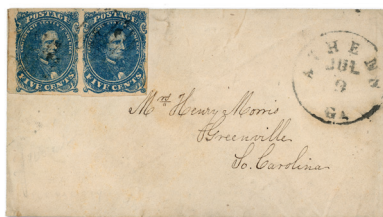 POSTAGE POSTAGE
FIVE CENTS FIVE CENTS
ATHENS
JUL
9
GA
Mrs Henry Morris
Greenville
So. Carolina